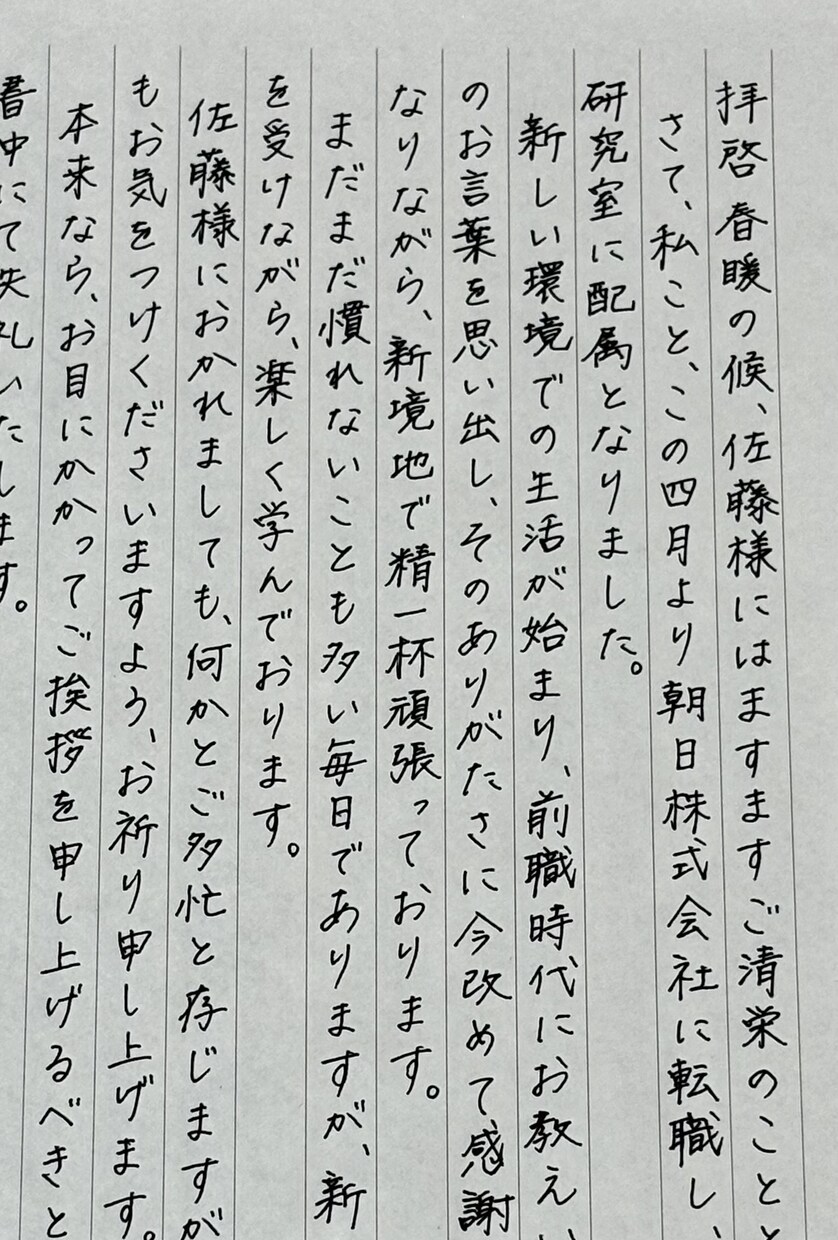 拝啓 春暖の候、佐藤様にはますますご清栄のことと
さて、私こと、この四月より朝日株式会社に転職し、
研究室に配属となりました。
新しい環境での生活が始まり、前職時代にお教えい
のお言葉を思い出し、そのありがたさに今改めて感謝
なりながら、新境地で精一杯頑張っております。
まだまだ慣れないことも多い毎日でありますが、新
を受けながら、楽しく学んでおります。
佐藤様におかれましても、何かとご多忙と存じますが
もお気をつけくださいますよう、お祈り申し上げます。
本来なら、お目にかかってご挨拶を申し上げるべきと
書中にて失礼いたします。